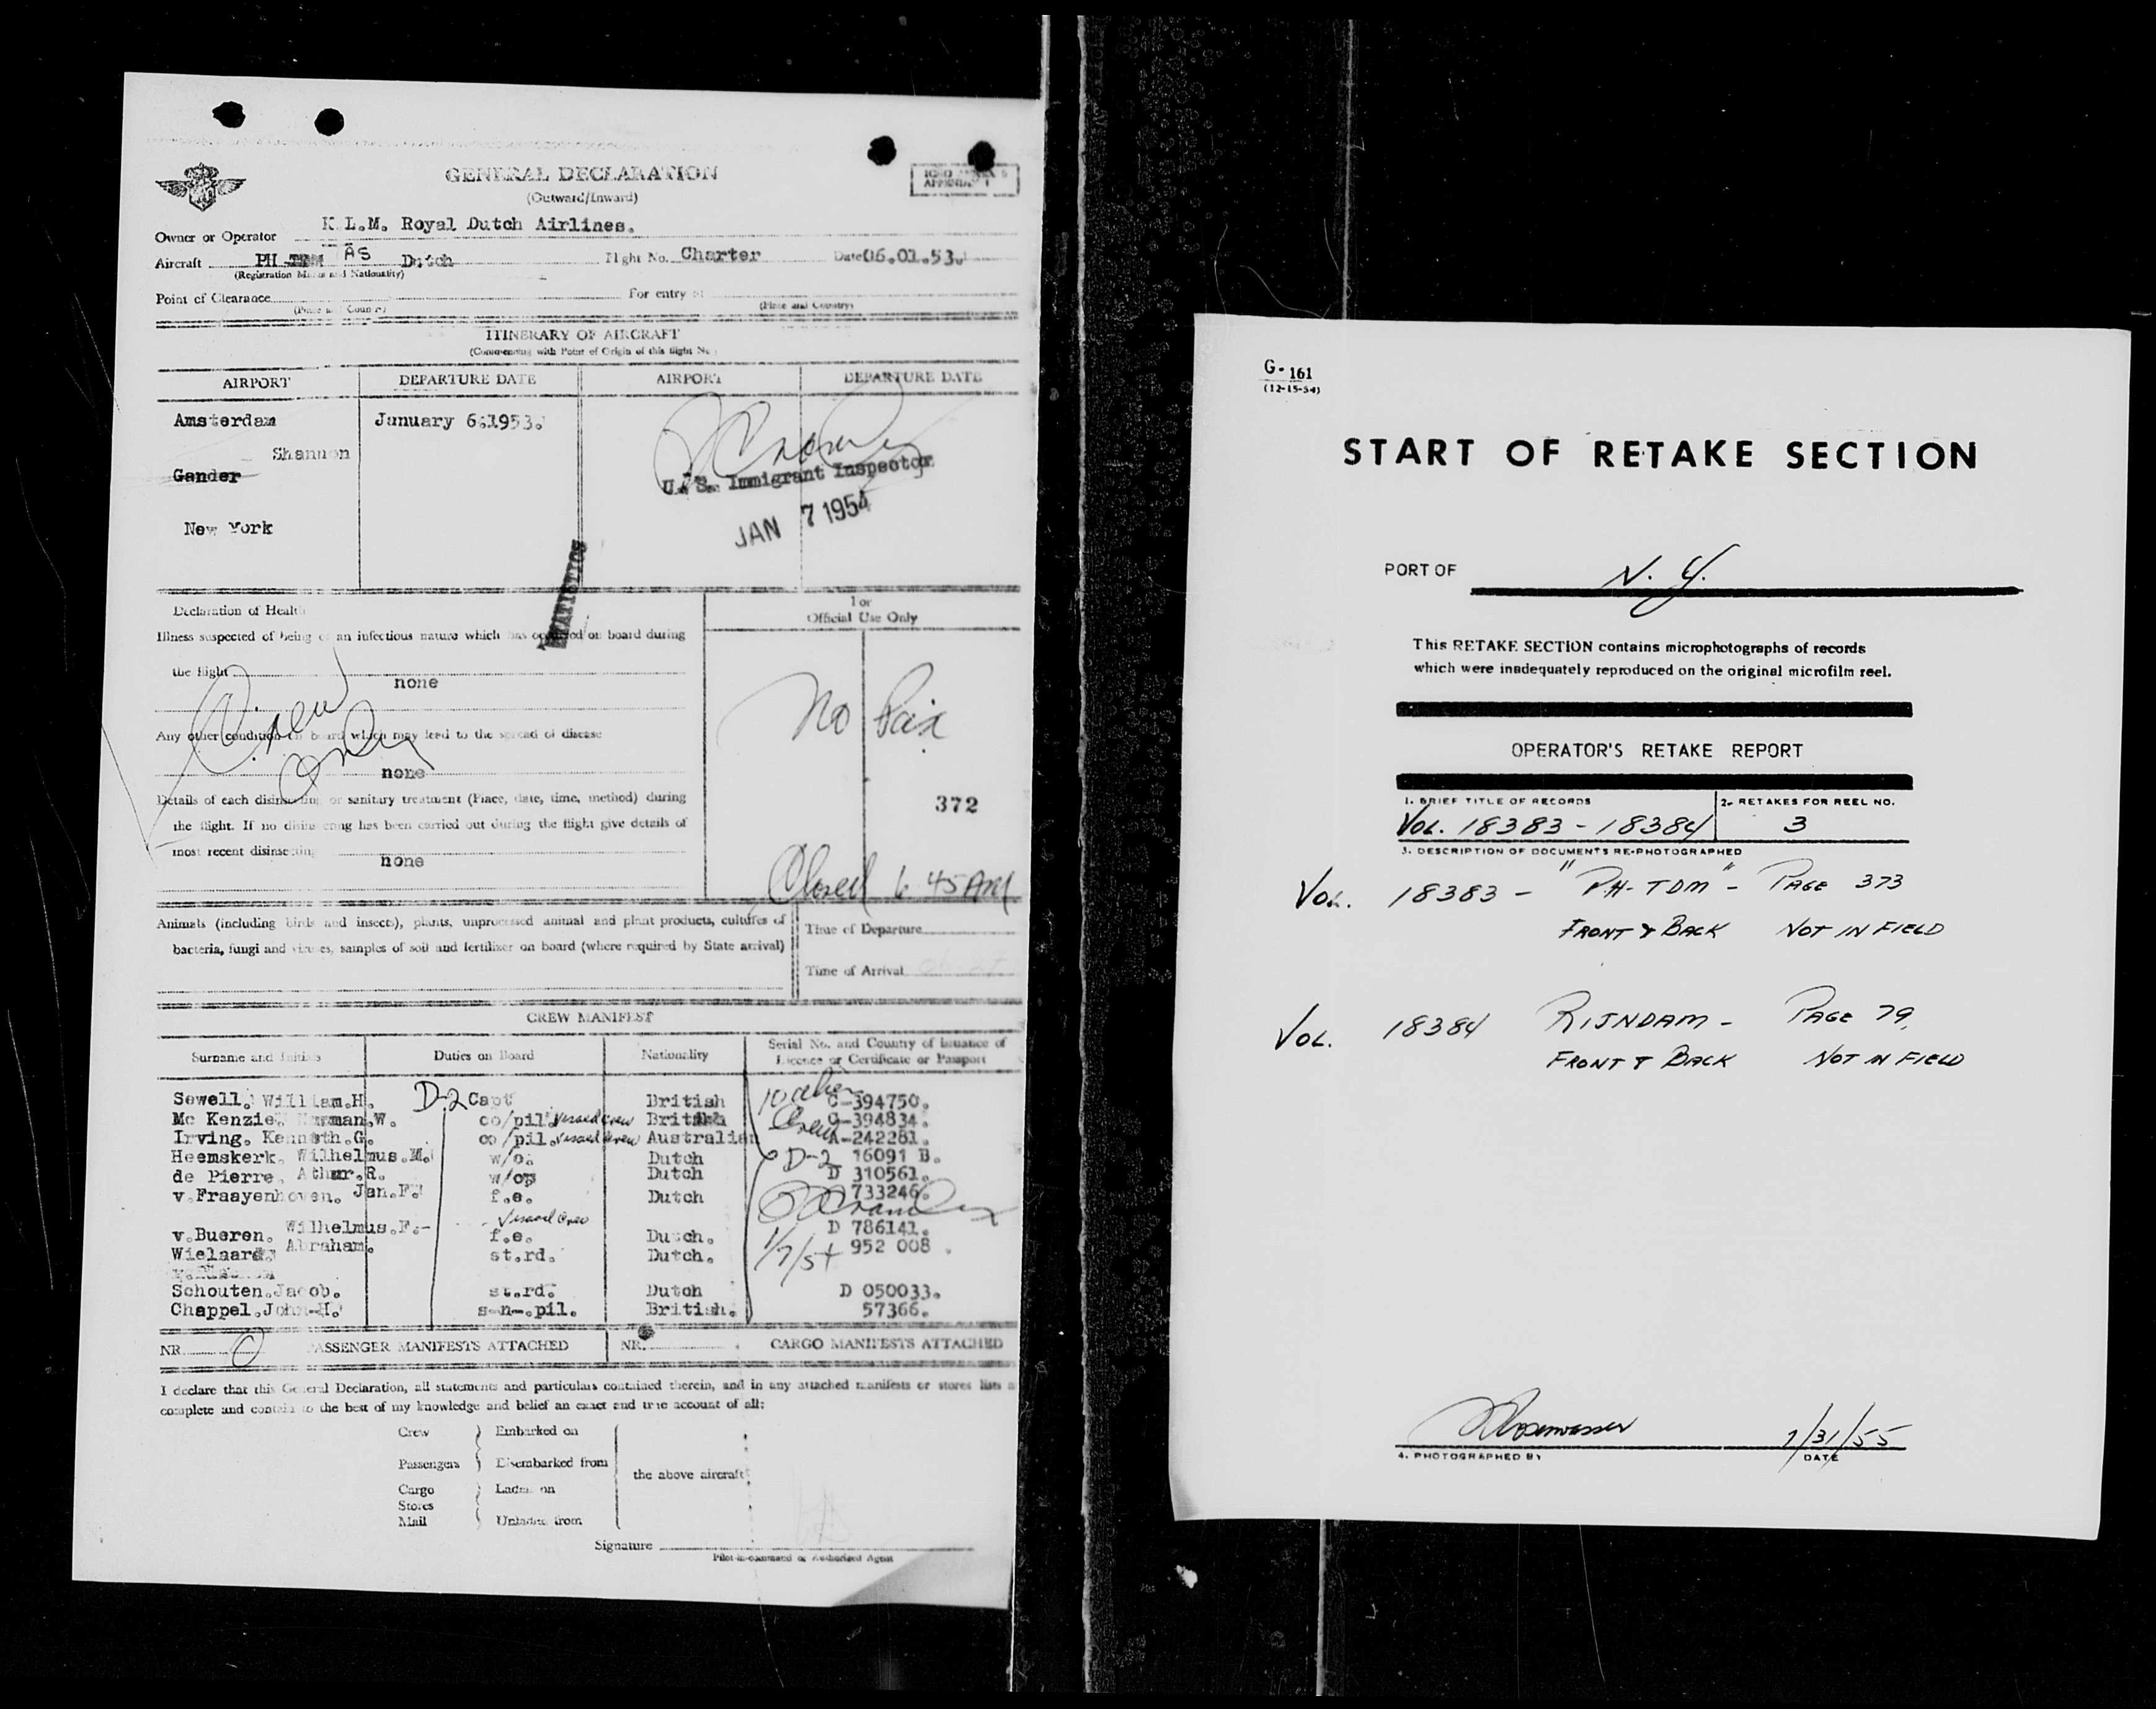 GENERAL DECLARATION
(Outward/Inward)
Owner or Operator K.L.M. Royal Dutch Airlines.
Aircraft PH AS Dutch Flight No. Charter Date 06.01.53.
(Registration Marks and Nationality)
Point of Clearance For entry at
(Place and Country) (Place and Country)
ITINERARY OF AIRCRAFT
(Commencing with Point of Origin of this flight No.
AIRPORT DEPARTURE DATE AIRPORT DEPARTURE DATE
Amsterdam January 6.1953.
Shannon
Gander
U. S. Immigrant Inspector
New York
JAN 7 1954
STATISTICS
Declaration of Health
For
Official Use Only
Illness suspected of being of an infectious nature which has occurred on board during
the flight
none
Crew
only
No Pax
Any other condition on board which may lead to the spread of disease
none
Details of each disinsecting or sanitary treatment (Place, date, time, method) during
372
the flight. If no disinsecting has been carried out during the flight give details of
most recent disinsecting
none
Closed 6 45 AM
Animals (including birds and insects), plants, unprocessed animal and plant products, cultures of
bacteria, fungi and viruses, samples of soil and fertilizer on board (where required by State arrival)
Time of Departure
Time of Arrival
CREW MANIFEST
Surname and Initials Duties on Board Nationality Serial No. and Country of Issuance of
Licence or Certificate or Passport
Sewell. William.H. D-2 Capt British 10 alien C-394750.
Mc Kenzie. Norman.W. co/pil. Vessel Crew British Crew C-394834.
Irving. Kenneth.G. co/pil. Vessel Crew Australian A-242281.
Heemskerk. Wilhelmus.M. w/o. Dutch D-2 16091 B.
de Pierre. Athur.R. w/op Dutch D 310561.
v.Fraayenhoven. Jan.F. f.e. Dutch 733246.
Vessel Crew
v.Bueren. Wilhelmus.F.- f.e. Dutch. D 786141.
Wielaard. Abraham. st.rd. Dutch. 1/7/54 952 008 .
Schouten.Jacob. st.rd. Dutch D 050033.
Chappel.John-H. s-n-.pil. British. 57366.
NR 0 PASSENGER MANIFESTS ATTACHED NR. CARGO MANIFESTS ATTACHED
I declare that this General Declaration, all statements and particulars contained therein, and in any attached manifests or stores lists
complete and contain to the best of my knowledge and belief an exact and true account of all:
Crew Embarked on
Passengers Disembarked from
the above aircraft
Cargo Laden on
Stores
Mail Unladen from
Signature
Pilot-in-command or Authorised Agent
G-161
(12-15-54)
START OF RETAKE SECTION
PORT OF N. Y.
This RETAKE SECTION contains microphotographs of records
which were inadequately reproduced on the original microfilm reel.
OPERATOR'S RETAKE REPORT
1. BRIEF TITLE OF RECORDS 2. RETAKES FOR REEL NO.
VOL. 18383 - 18384 3
3. DESCRIPTION OF DOCUMENTS RE-PHOTOGRAPHED
VOL. 18383 - "PH-TDM" - PAGE 373
FRONT & BACK NOT IN FIELD
VOL. 18384 RIJNDAM - PAGE 79,
FRONT & BACK NOT IN FIELD
Rosenwasser 1/31/55
4. PHOTOGRAPHED BY DATE